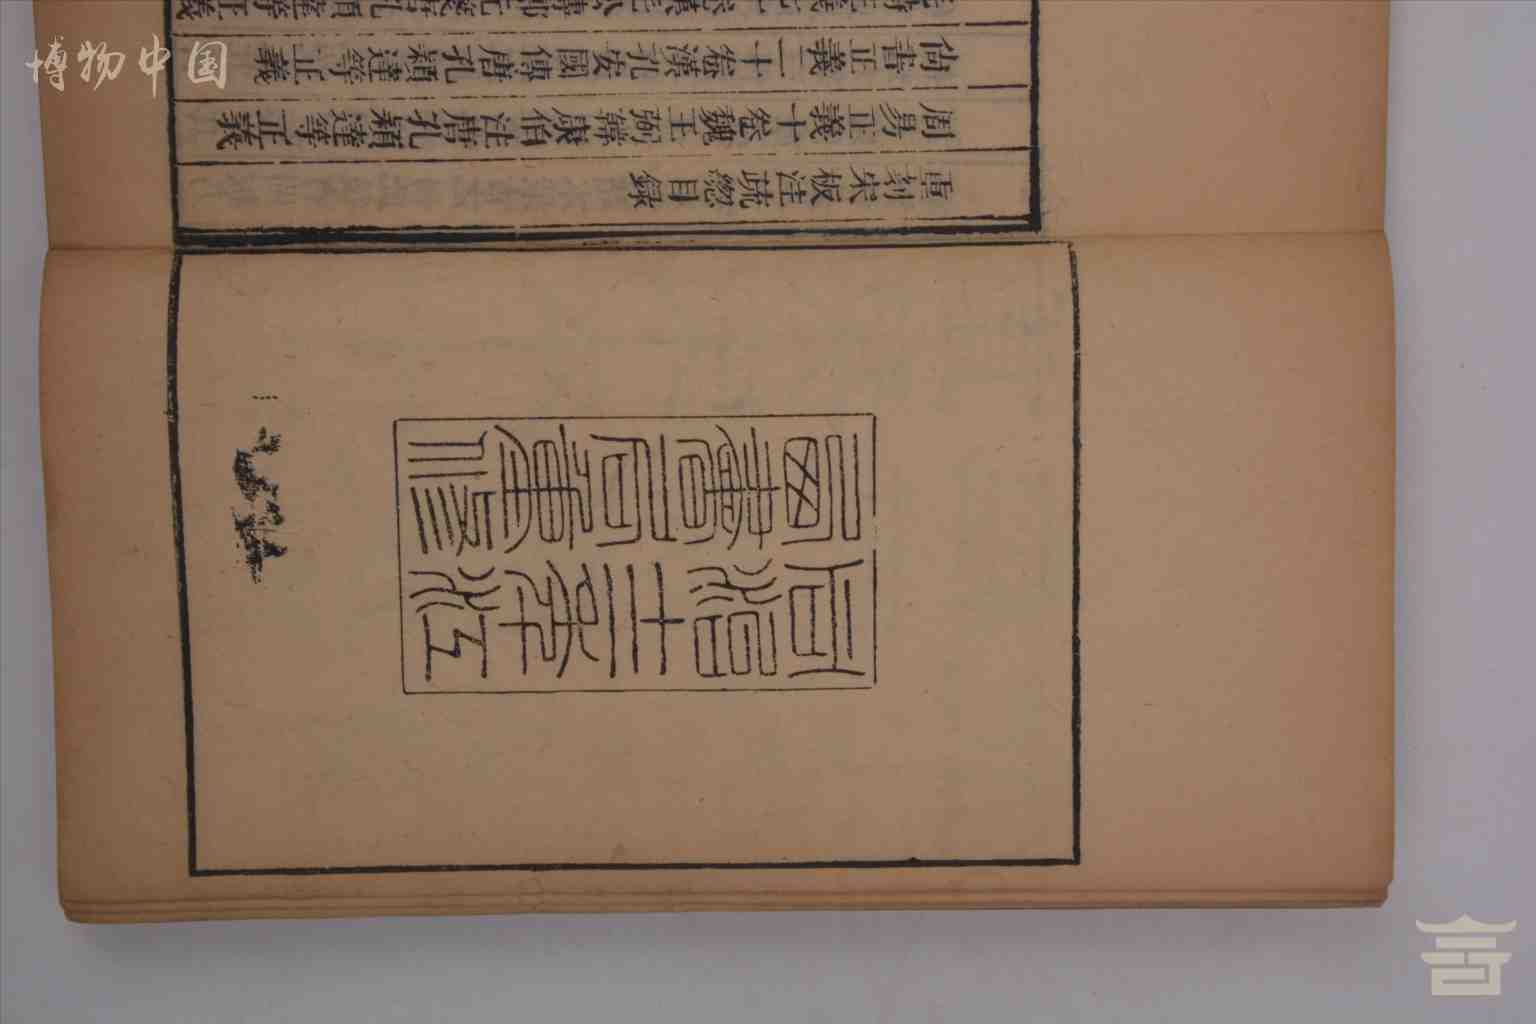 博物中国
同治十二年江
西書局重修
重刻宋板注疏緫目録
周易正義十卷魏王弼韓康伯注唐孔穎達等正義
尚書正義二十卷漢孔安國傳唐孔穎達等正義